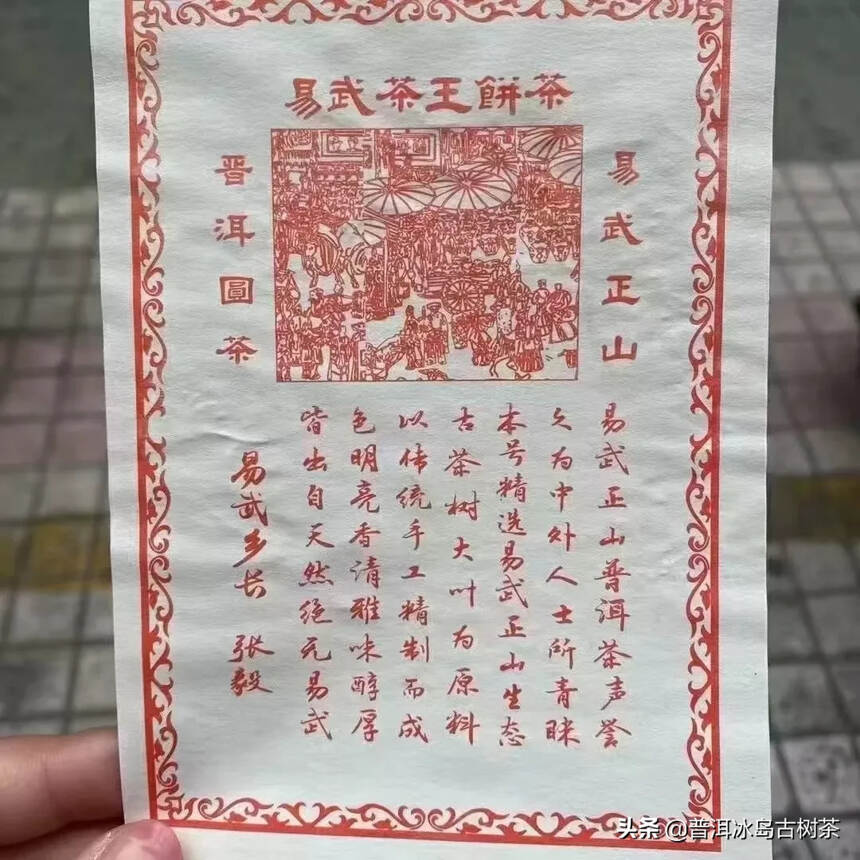 易武茶王餅茶
易武正山
普洱圓茶
易武正山普洱茶声誉
久为中外人士所青睐
本号精选易武正山生态
古茶树大叶为原料
以传统手工精制而成
色明亮香清雅味醇厚
皆出自天然绝无易武
易武乡长 张毅
头条@普洱冰岛古树茶